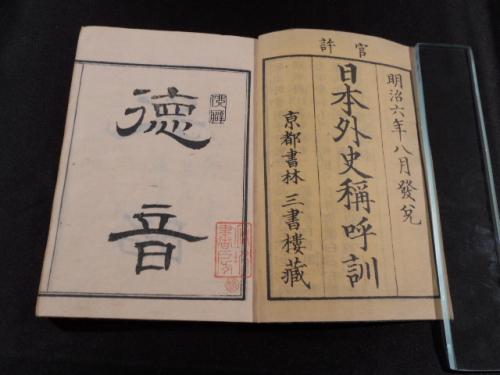 官許
明治六年八月發兌
日本外史稱呼訓
京都書林三書樓藏
德音